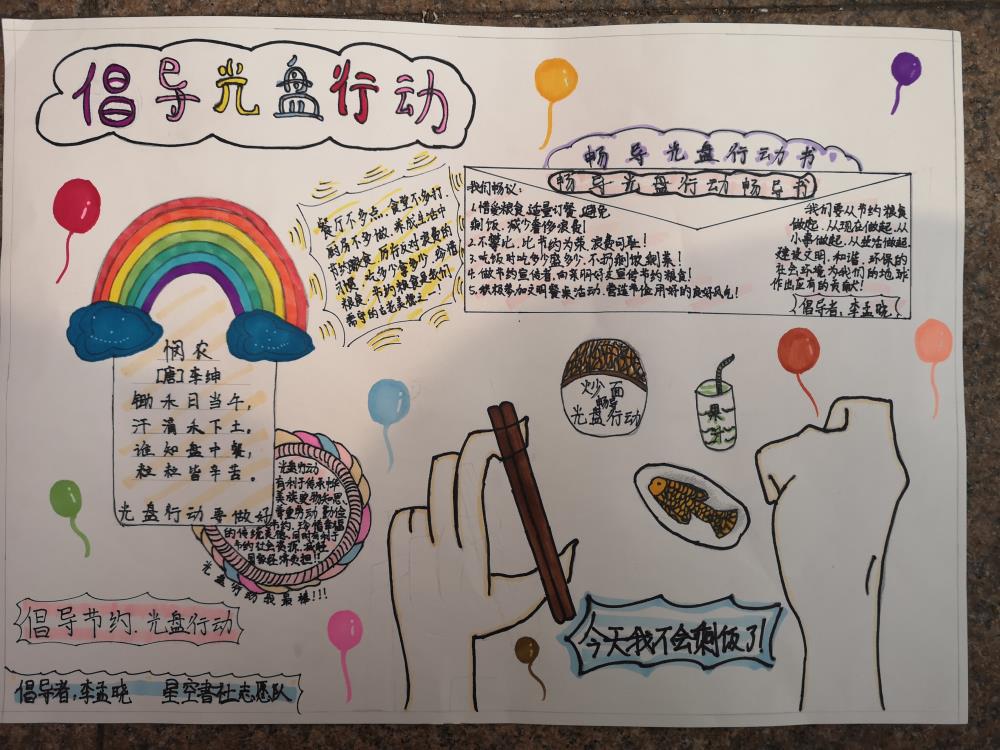 倡导光盘行动
畅导光盘行动书
畅导光盘行动畅导书
餐厅不多点,食堂不多打,
厨房不多做,养成生活中
节约粮食、厉行反对浪费的
习惯,吃多少拿多少,珍惜
粮食,节约粮食是我们
需守的古老美德之一!
我们畅议:
1.惜爱粮食,适量订餐,避免
剩饭,减少奢侈浪费!
2.不攀比,比节约为荣,浪费可耻!
3.吃饭时吃多少盛多少,不扔剩饭剩菜!
4.做节约宣传者,向亲朋好友宣传节约粮食!
5.积极参加文明餐桌活动,营造节位用好的良好风气!
我们要从节约粮食
做起,从现在做起,从
小事做起,从生活做起,
建设文明,和谐,环保的
社会环境为我们的地球
作出应有的贡献!
倡导者,李孟晓
悯农
[唐]李绅
锄禾日当午,
汗滴禾下土。
谁知盘中餐,
粒粒皆辛苦。
光盘行动要做好
光盘行动
有利于传承中华
美族更物知恩、
尊重劳动 勤俭
节约、珍惜幸福
的传统美德、同时有利于
节约社会资源、减轻
国家经济负担!!
光盘行动我最棒!!!
炒面
畅导
光盘行动
果汁
倡导节约.光盘行动
今天我不会剩饭了!
倡导者,李孟晓 星空书社志愿队